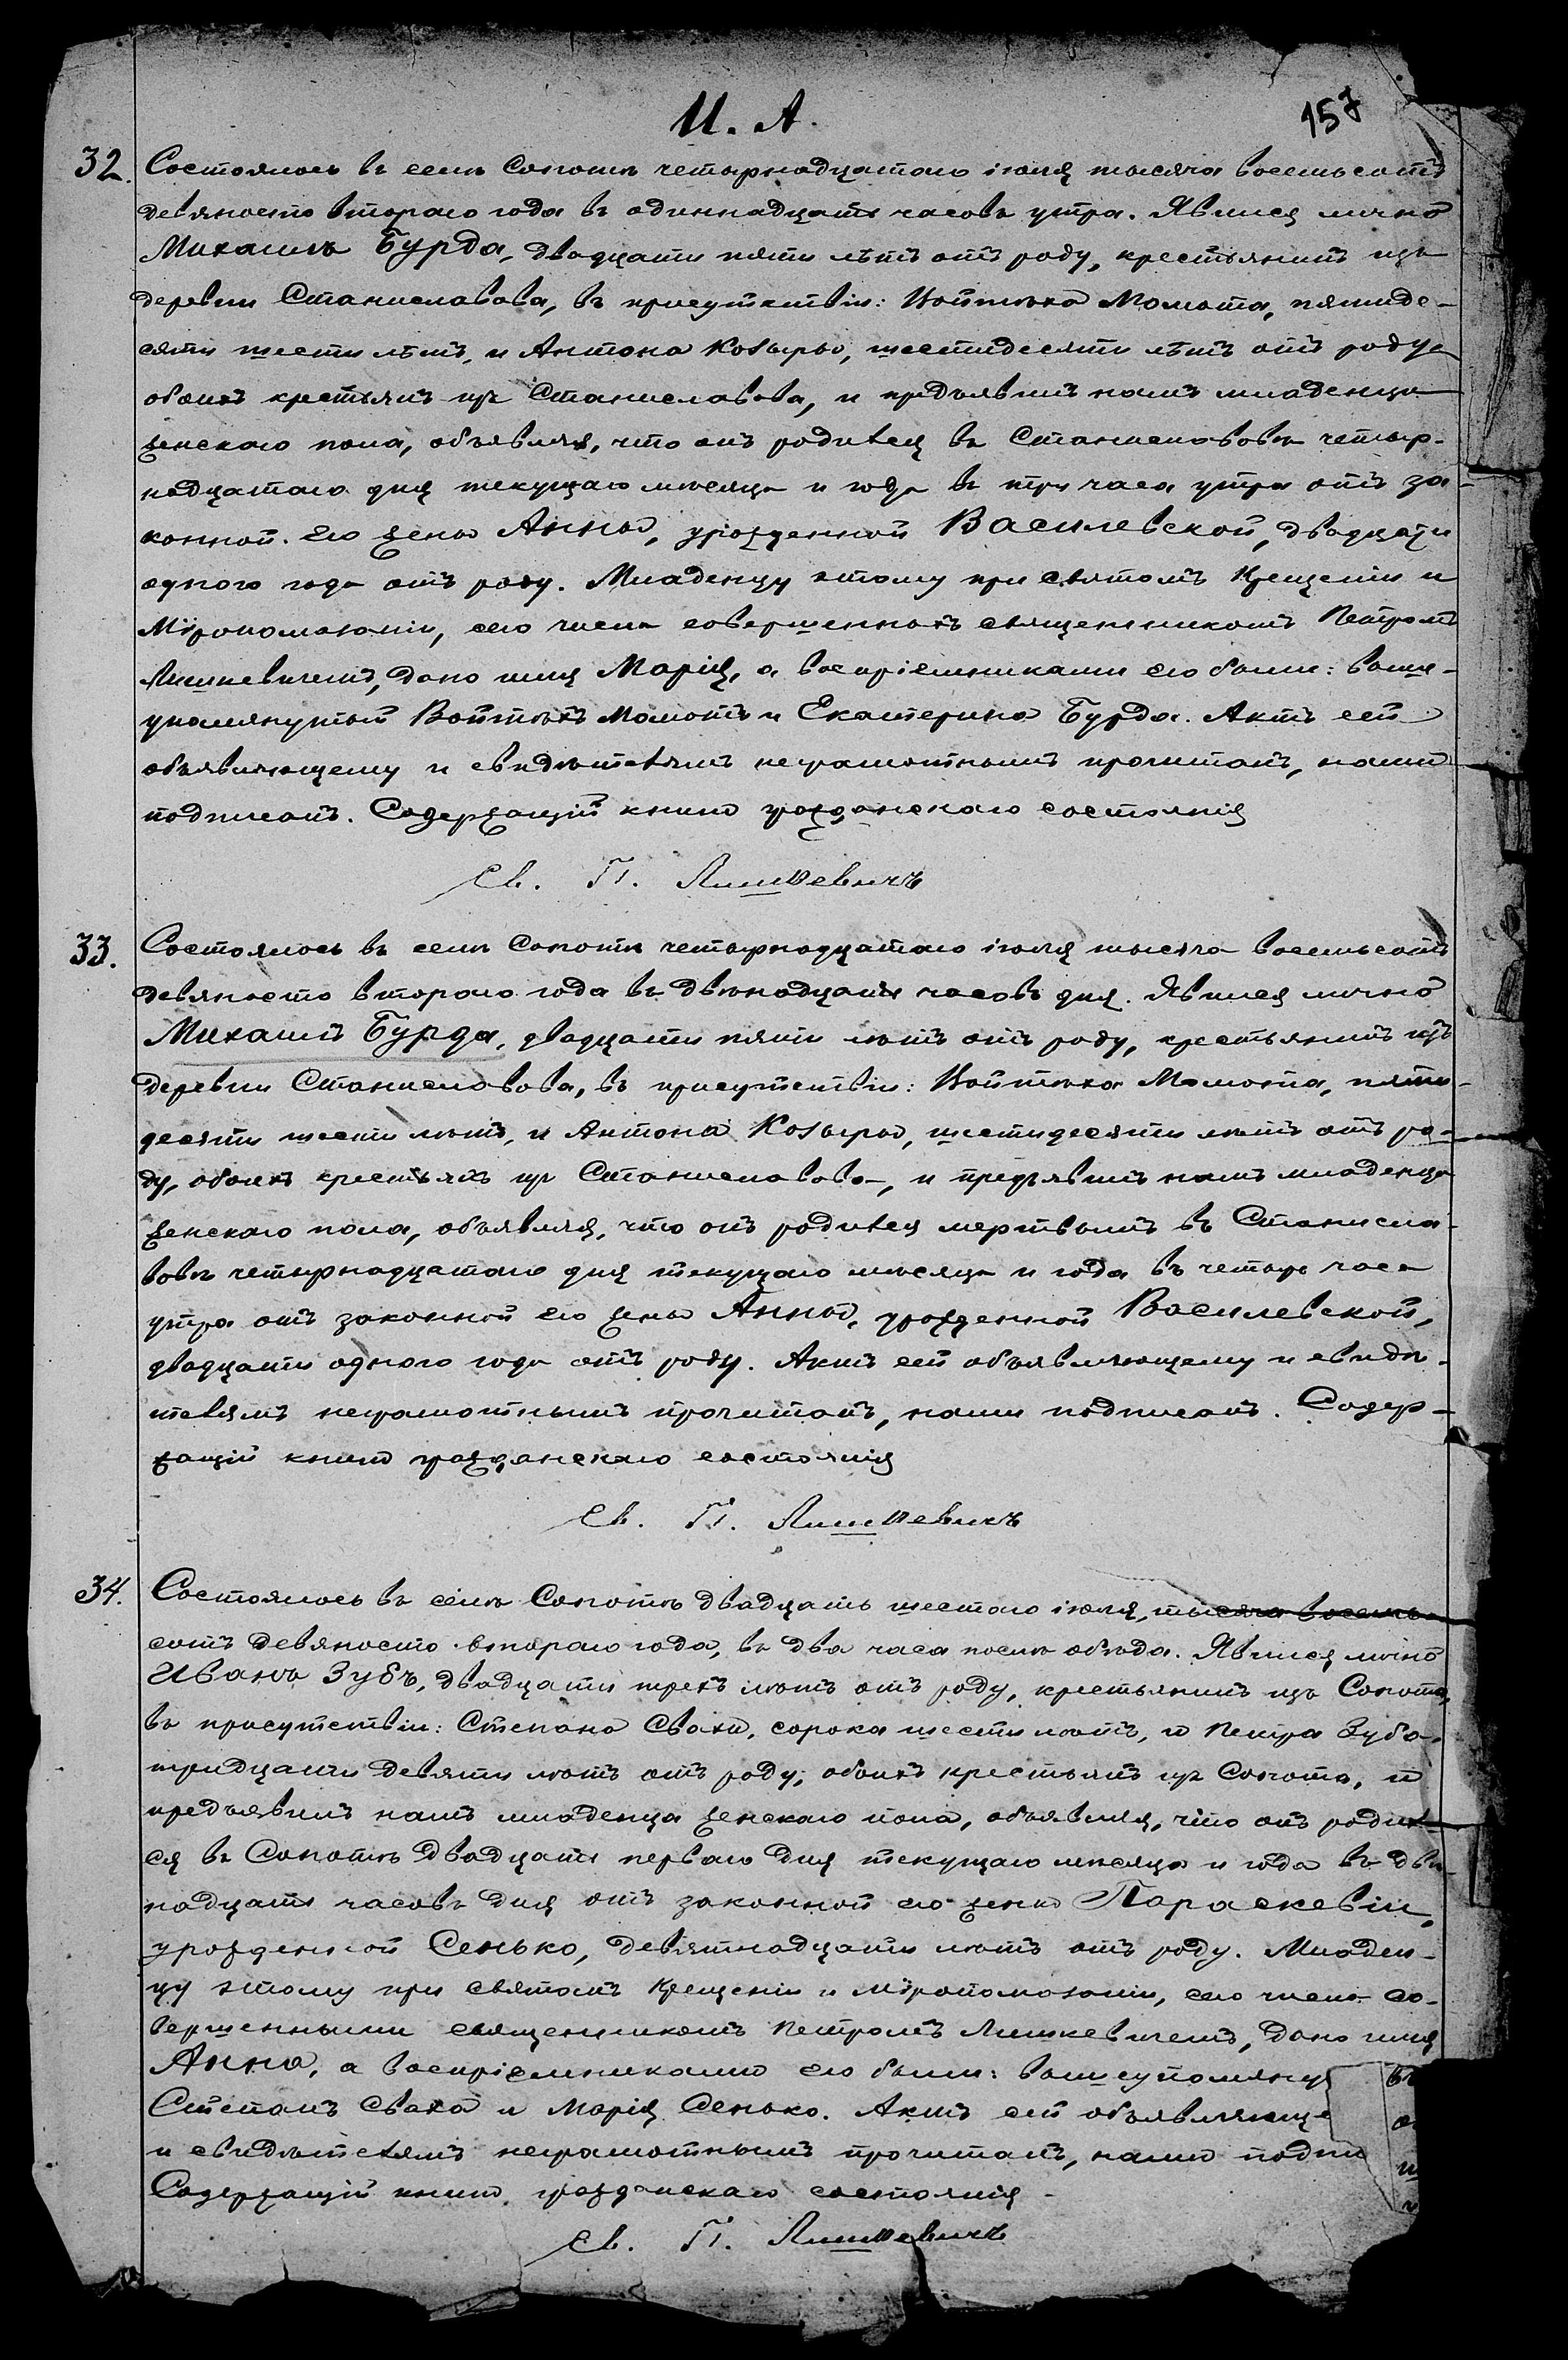 И. А.
157
32. Состоялось въ селѣ Сопотѣ четырнадцатаго іюля тысяча восемьсотъ
девяносто втораго года въ одиннадцать часовъ утра. Явился лично
Михаилъ Бурда, двадцати пяти лѣтъ отъ роду, крестьянинъ изъ
деревни Станиславова, въ присутствіи: Войтѣха Момота, пятиде-
сяти шести лѣтъ, и Антона Козыры, шестидесяти лѣтъ отъ роду,
обоихъ крестьянъ изъ Станиславова, и предъявилъ намъ младенца
женскаго пола, объявляя, что онъ родился въ Станиславовѣ четыр-
надцатаго дня текущаго мѣсяца и года въ три часа утра отъ за-
конной его жены Анны, урожденной Василевской, двадцати
одного года отъ роду. Младенцу этому при святомъ Крещеніи и
Мѵропомазаніи, сего числа совершенныхъ священникомъ Петромъ
Лишкевичемъ, дано имя Марія, а воспріемниками его были: выше-
упомянутый Войтѣхъ Момотъ и Екатерина Бурда. Актъ сей
объявляющему и свидѣтелямъ неграмотнымъ прочитанъ, нами
подписанъ. Содержащій книги гражданскаго состоянія
Св. П. Лишкевичъ
33. Состоялось въ селѣ Сопотѣ четырнадцатаго іюля тысяча восемьсотъ
девяносто второго года въ двѣнадцать часовъ дня. Явился лично
Михаилъ Бурда, двадцати пяти лѣтъ отъ роду, крестьянинъ изъ
деревни Станиславова, въ присутствіи: Войтѣха Момота, пяти-
десяти шести лѣтъ, и Антона Козыры, шестидесяти лѣтъ отъ ро-
ду, обоихъ крестьянъ изъ Станиславова, и предъявилъ намъ младенца
женскаго пола, объявляя, что онъ родился мертвымъ въ Станисла-
вовѣ четырнадцатаго дня текущаго мѣсяца и года въ четыре часа
утра отъ законной его жены Анны, урожденной Василевской,
двадцати одного года отъ роду. Актъ сей объявляющему и свидѣ-
телямъ неграмотнымъ прочитанъ, нами подписанъ. Содер-
жащій книги гражданскаго состоянія
Св. П. Лишкевичъ
34. Состоялось въ селѣ Сопотѣ двадцать шестого іюля, тысяча восемь-
сотъ девяносто втораго года, въ два часа послѣ обѣда. Явился лично
Иванъ Зубъ, двадцати трехъ лѣтъ отъ роду, крестьянинъ изъ Сопота,
въ присутствіи: Степана Свахи, сорока шести лѣтъ, и Петра Зуба,
тридцати девяти лѣтъ отъ роду, обоихъ крестьянъ изъ Сопота, и
предъявилъ намъ младенца женскаго пола, объявляя, что онъ родил-
ся въ Сопотѣ двадцать перваго дня текущаго мѣсяца и года въ двѣ-
надцать часовъ дня отъ законной его жены Параскевіи,
урожденной Сенько, девятнадцати лѣтъ отъ роду. Младен-
цу этому при святомъ Крещеніи и Мѵропомазаніи, сего числа со-
вершенными священникомъ Петромъ Лишкевичемъ, дано имя
Анна, а воспріемниками его были: вышеупомяну
Степанъ Сваха и Марія Сенько. Актъ сей объявляюще
и свидѣтелямъ неграмотнымъ прочитанъ, нами подпи
Содержащій книги гражданскаго состоянія
Св. П. Лишкевичъ